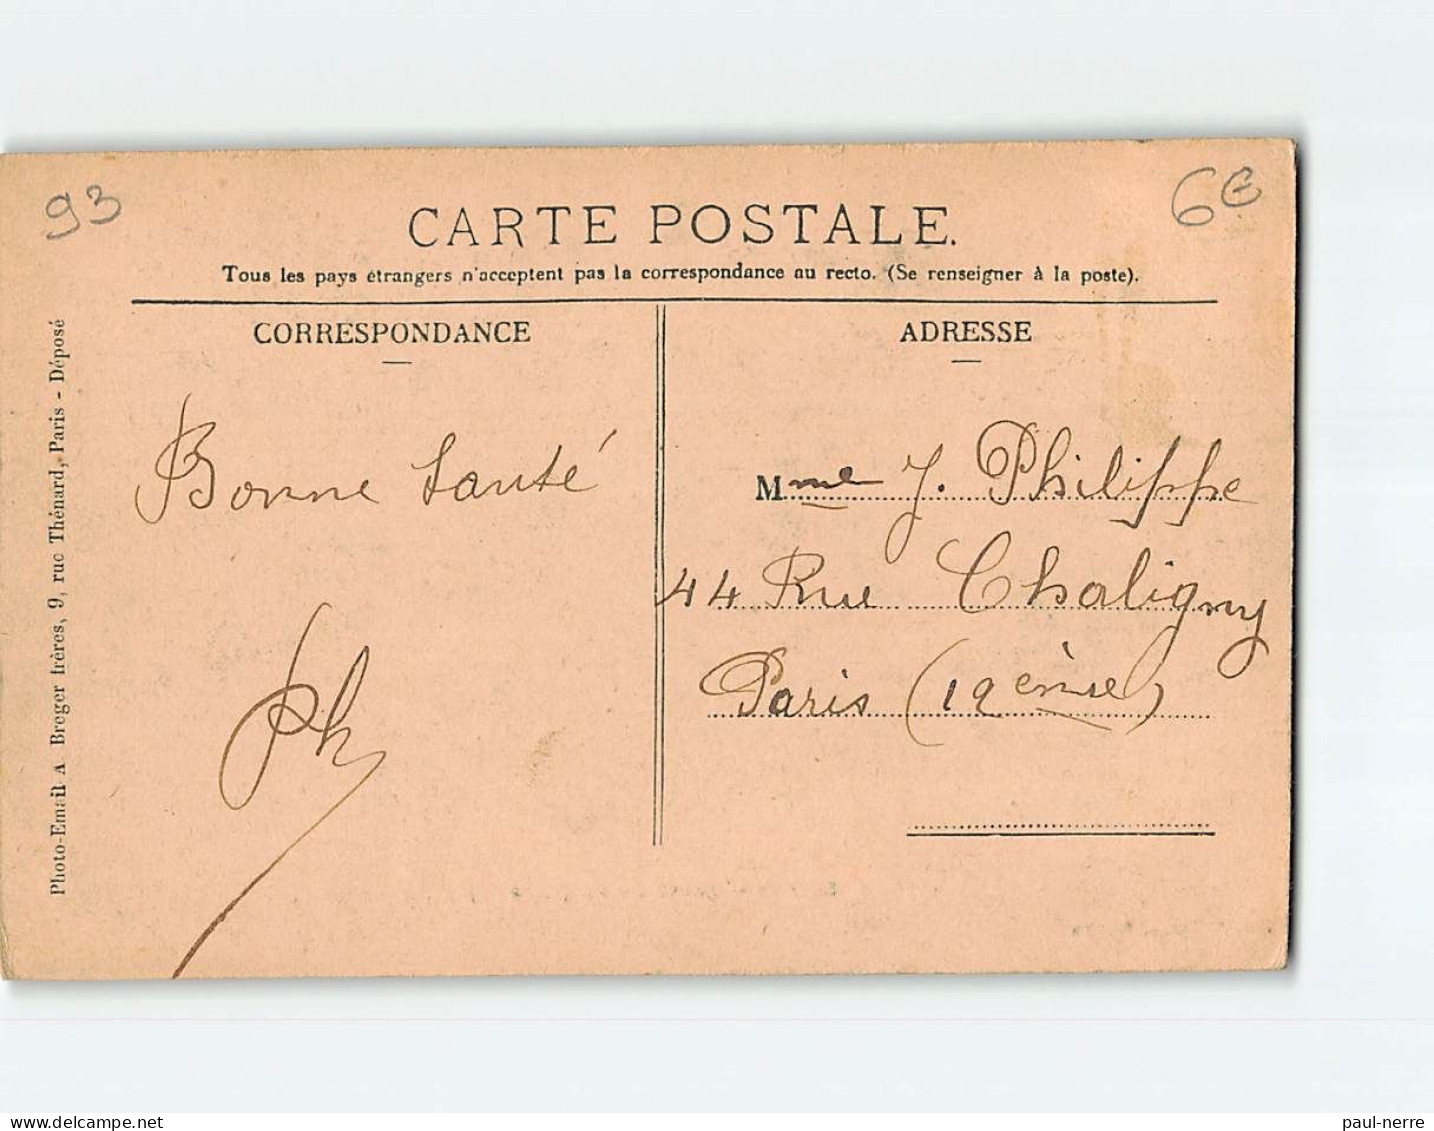 93
6€
CARTE POSTALE.
Tous les pays étrangers n'acceptent pas la correspondance au recto. (Se renseigner à la poste).
CORRESPONDANCE
ADRESSE
Photo-Email A Breger frères, 9, rue Thénard, Paris - Déposé
Bonne Santé
Ph
Mme J. Philippe
44 Rue Chaligny
Paris (12ème)
delcampe.net
paul-nerre